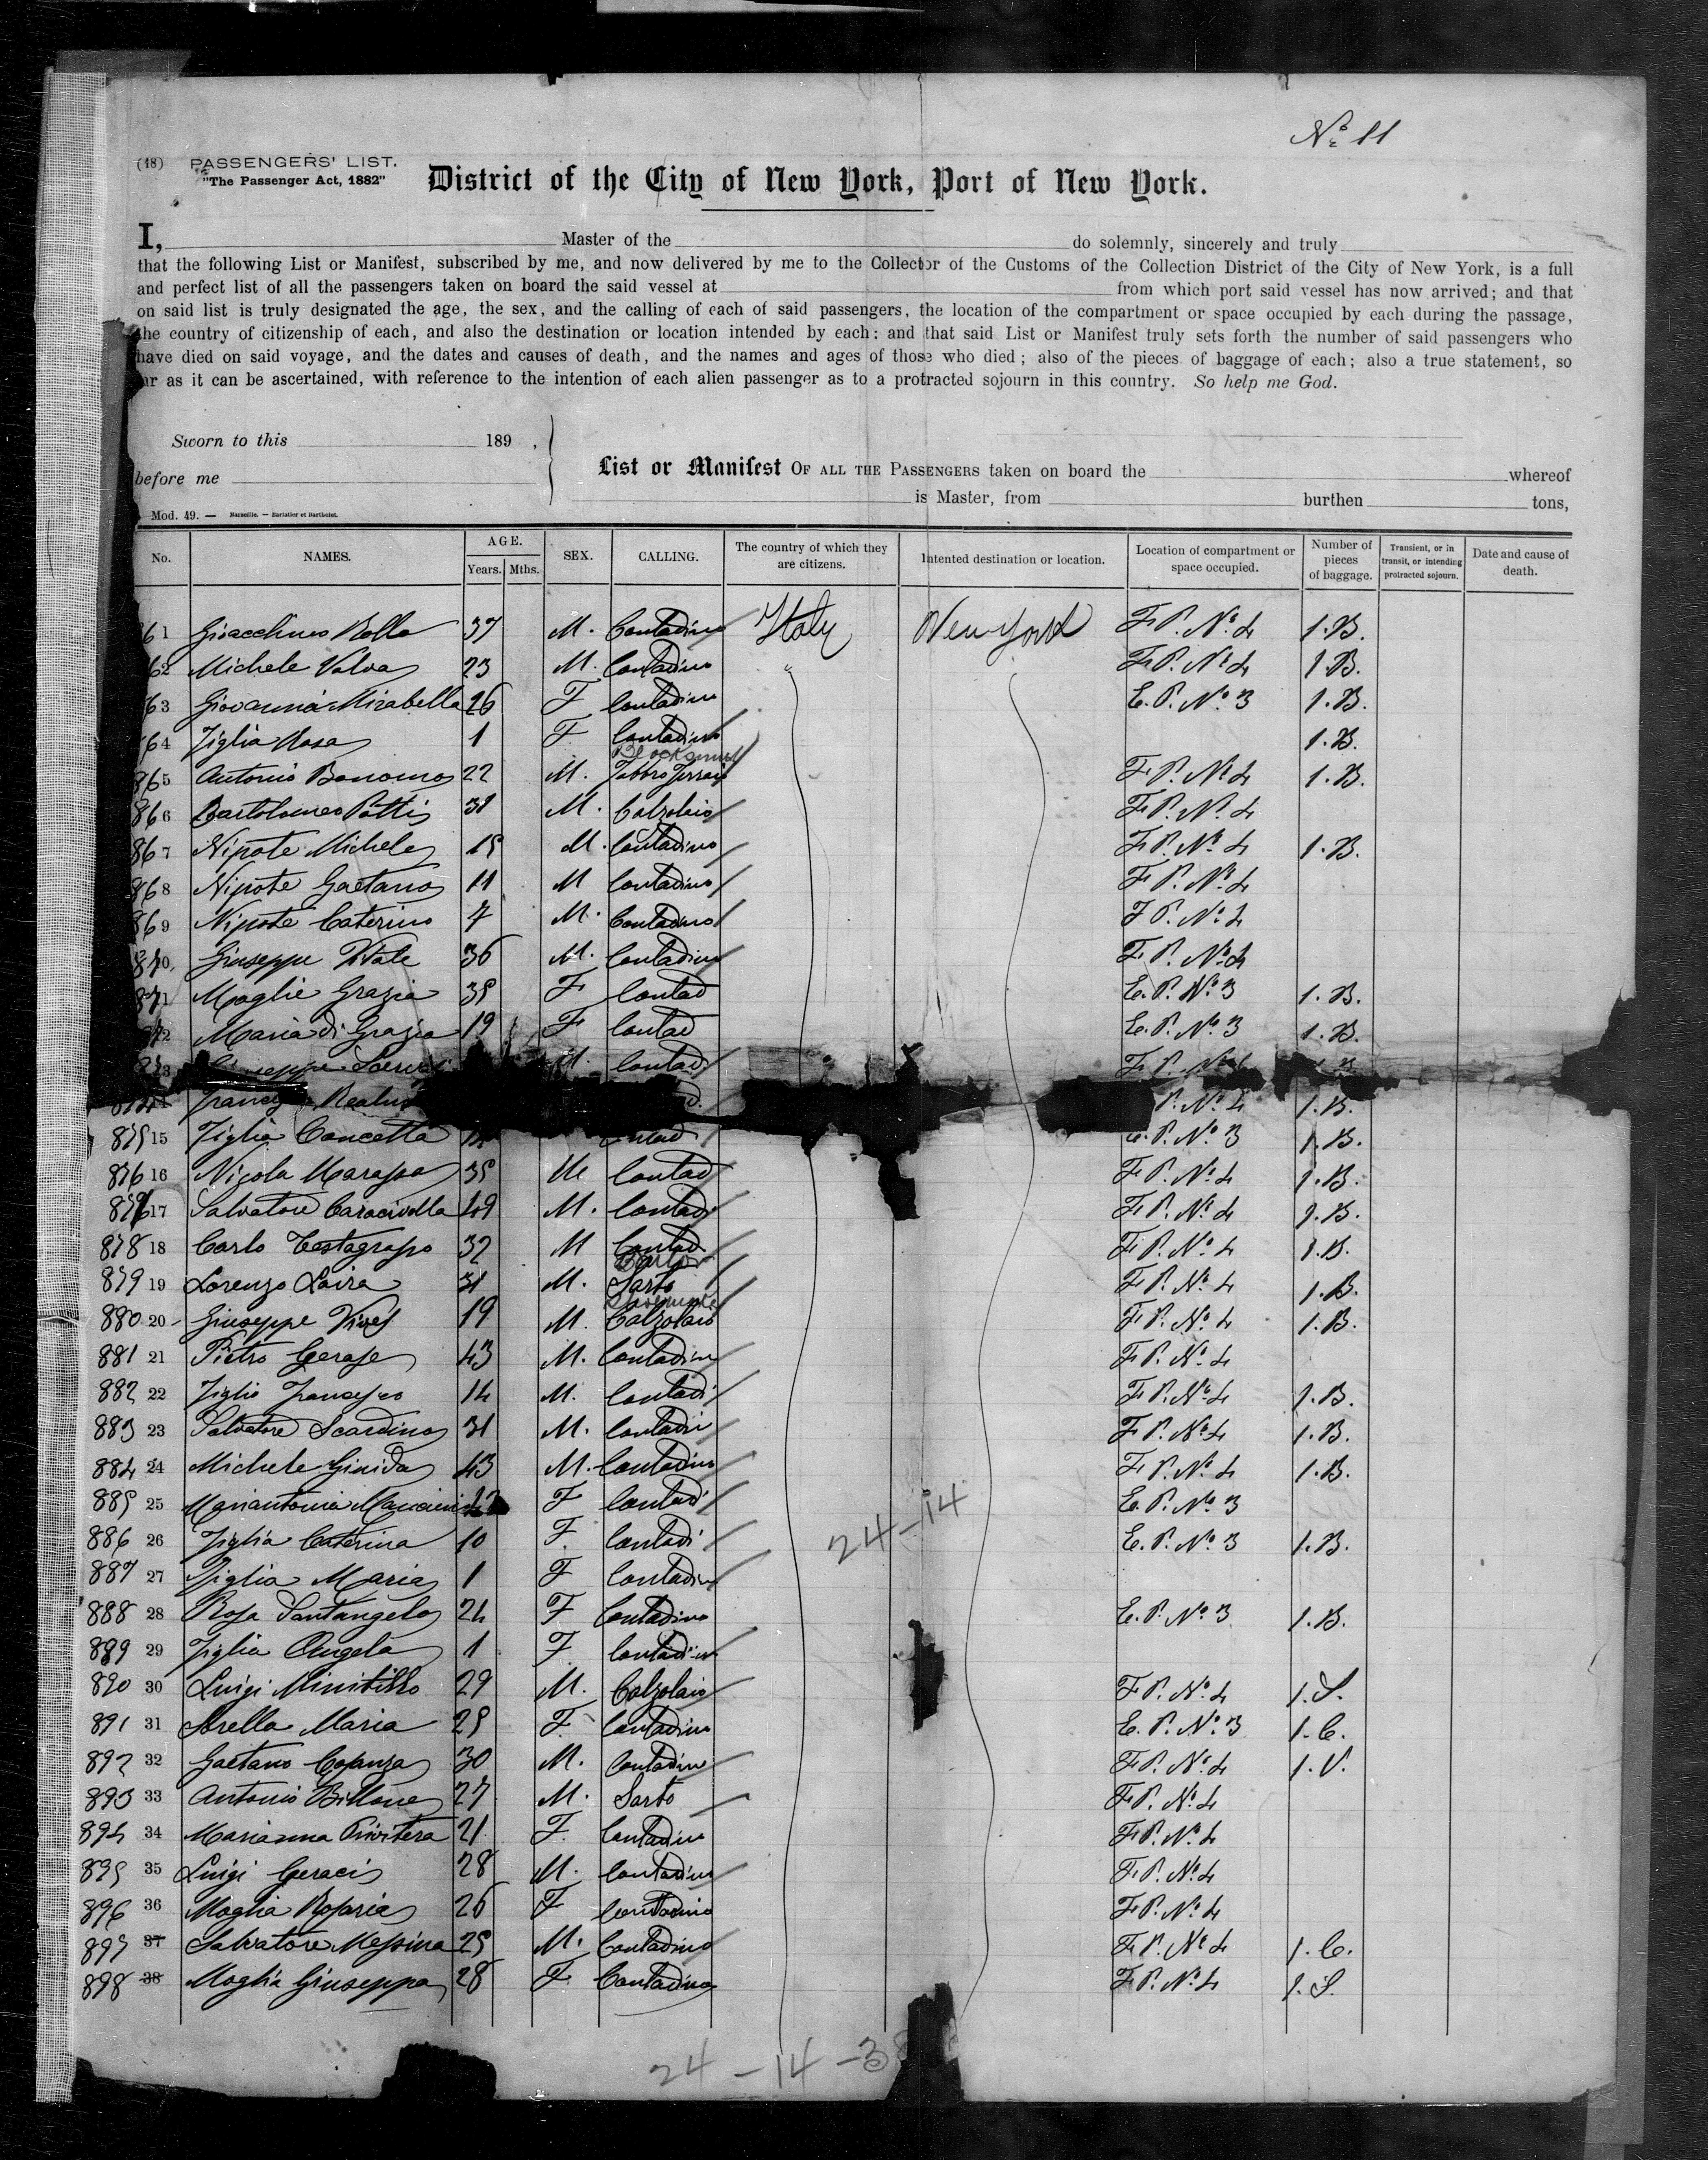 Nº 11
(48) PASSENGERS' LIST.
"The Passenger Act, 1882"
District of the City of New York, Port of New York.
I, Master of the do solemnly, sincerely and truly
that the following List or Manifest, subscribed by me, and now delivered by me to the Collector of the Customs of the Collection District of the City of New York, is a full
and perfect list of all the passengers taken on board the said vessel at from which port said vessel has now arrived; and that
on said list is truly designated the age, the sex, and the calling of each of said passengers, the location of the compartment or space occupied by each during the passage,
the country of citizenship of each, and also the destination or location intended by each; and that said List or Manifest truly sets forth the number of said passengers who
have died on said voyage, and the dates and causes of death, and the names and ages of those who died; also of the pieces of baggage of each; also a true statement, so
ar as it can be ascertained, with reference to the intention of each alien passenger as to a protracted sojourn in this country. So help me God.
Sworn to this 189 ,
before me
List or Manifest OF ALL THE PASSENGERS taken on board the whereof
is Master, from burthen tons,
Mod. 49. — Marseille. — Barlatier et Barthelet.
No. NAMES. AGE. Years. Mths. SEX. CALLING. The country of which they are citizens. Intented destination or location. Location of compartment or space occupied. Number of pieces of baggage. Transient, or in transit, or intending protracted sojourn. Date and cause of death.
61 Gioacchino Rollo 37 M. Contadino Italy New York F P. Nº 4 1.B.
62 Michele Valva 23 M. Contadino " F P. Nº 4 1.B.
63 Giovanna Mirabella 26 F Contadino E. P. Nº 3 1.B.
64 Figlia Rosa 1 F Contadino 1.B.
Blacksmith
865 Antonio Bonomo 22 M. Fabbro Ferraio F P. Nº 4 1.B.
866 Bartolomeo Potti 31 M. Calzolaio F P. Nº 4
867 Nipote Michele 15 M. Contadino F P. Nº 4 1.B.
868 Nipote Gaetano 11 M Contadino F P. Nº 4
869 Nipote Caterino 7 M. Contadino F P. Nº 4
870 Giuseppe Vitale 36 M. Contadino F P. Nº 4
871 Moglie Grazia 35 F Contad E. P. Nº 3 1.B.
872 Maria di Grazia 19 F Contad E. P. Nº 3 1.B.
873 Giuseppe M. Contad F P. Nº 4
P. Nº 4 1.B.
875 15 Figlia Concetta Contad E. P. Nº 3 1.B.
876 16 Nicola Marassa 35 M Contad F P. Nº 4 1.B.
877 17 Salvatore Caracivolla 49 M. Contad F P. Nº 4 1.B.
878 18 Carlo Testagrossa 32 M Contad F P. Nº 4 1.B.
879 19 Lorenzo Laira 31 M. Sarto F P. Nº 4 1.B.
Shoemaker
880 20 Giuseppe Vives 19 M. Calzolaio F P. Nº 4 1.B.
881 21 Pietro Gerase 43 M. Contadin F P. Nº 4
882 22 Figlio Francesco 14 M. Contadi F P. Nº 4 1.B.
883 23 Salvatore Scardino 31 M. Contadi F P. Nº 4 1.B.
884 24 Michele Ginida 43 M. Contadino F P. Nº 4 1.B.
885 25 Mariantonia Mancini F Contadi E. P. Nº 3
24-14
886 26 Figlia Caterina 10 F. Contadi E. P. Nº 3 1.B.
887 27 Figlia Maria 1 F Contadin
888 28 Rosa Santangelo 24 F Contadino E. P. Nº 3 1.B.
889 29 Figlia Angela 1 F. Contadin
890 30 Luigi Minitillo 29 M. Calzolaio F P. Nº 4 1.S.
891 31 Arella Maria 25 F. Contadino E. P. Nº 3 1.C.
892 32 Gaetano Cosanza 30 M. Contadino F P. Nº 4 1.V.
893 33 Antonio Billone 27 M. Sarto F P. Nº 4
894 34 Marianna Privitera 21 F. Contadino F P. Nº 4
895 35 Luigi Geraci 28 M. Contadino F P. Nº 4
896 36 Moglia Rosaria 26 F Contadino F P. Nº 4
897 37 Salvatore Messina 25 M. Contadino F P. Nº 4 1.C.
898 38 Moglia Giuseppa 28 F. Contadino F P. Nº 4 1.S.
24-14-38